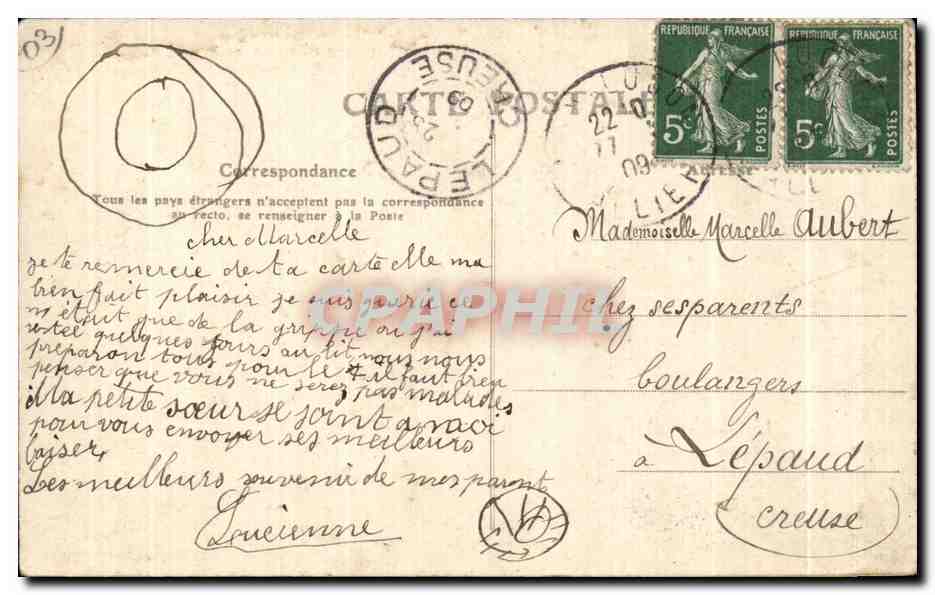 03)
CARTE POSTALE
Correspondance
Tous les pays étrangers n'acceptent pas la correspondance
au recto, se renseigner à la Poste
Adresse
RÉPUBLIQUE FRANÇAISE
5c
POSTES
RÉPUBLIQUE FRANÇAISE
5c
POSTES
LEPAUD
CREUSE
23
09
22
11
09
ALLIER
cher Marcelle
je te remercie de ta carte elle ma
bien fait plaisir je suis guerie ce
n'etait que de la grippe ou j'ai
restée quelques jours au lit nous nous
préparon tous pour le 7 il faut bien
penser que vous ne serez pas malades
Ma petite sœur se joint a moi
pour vous envoyer ses meilleurs
baiser,
Les meilleurs souvenir de mes parent
Lucienne
Mademoiselle Marcelle Aubert
chez ses parents
boulangers
à Lépaud
Creuse
CPAPHIL